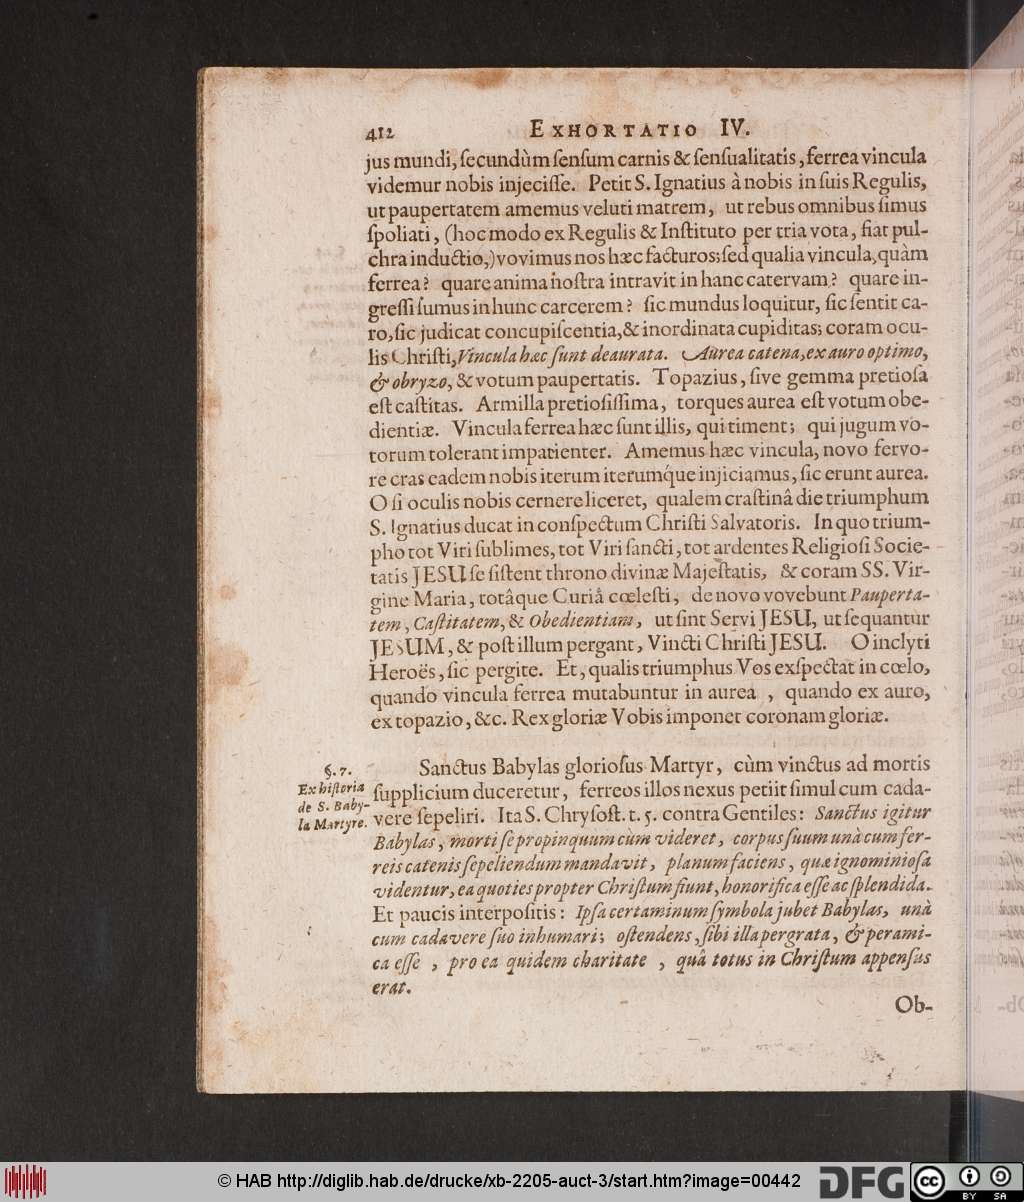 412 EXHORTATIO IV.
jus mundi, ſecundùm ſenſum carnis & ſenſualitatis, ferrea vincula
videmur nobis injeciſſe. Petit S. Ignatius à nobis in ſuis Regulis,
ut paupertatem amemus veluti matrem, ut rebus omnibus ſimus
ſpoliati, (hoc modo ex Regulis & Inſtituto per tria vota, fiat pul-
chra inductio,) vovimus nos hæc facturos; ſed qualia vincula, quàm
ferrea? quare anima noſtra intravit in hanc catervam? quare in-
greſſi ſumus in hunc carcerem? ſic mundus loquitur, ſic ſentit ca-
ro, ſic judicat concupiſcentia, & inordinata cupiditas; coram ocu-
lis Chriſti, Vincula hæc ſunt deaurata. Aurea catena, ex auro optimo,
& obryzo, & votum paupertatis. Topazius, ſive gemma pretioſa
eſt caſtitas. Armilla pretioſiſſima, torques aurea eſt votum obe-
dientiæ. Vincula ferrea hæc ſunt illis, qui timent; qui jugum vo-
torum tolerant impatienter. Amemus hæc vincula, novo fervo-
re cras eadem nobis iterum iterumq́ue injiciamus, ſic erunt aurea.
O ſi oculis nobis cernere liceret, qualem craſtinâ die triumphum
S. Ignatius ducat in conſpectum Chriſti Salvatoris. In quo trium-
pho tot Viri ſublimes, tot Viri ſancti, tot ardentes Religioſi Socie-
tatis JESU ſe ſiſtent throno divinæ Majeſtatis, & coram SS. Vir-
gine Maria, totâque Curiâ cœleſti, de novo vovebunt Pauperta-
tem, Caſtitatem, & Obedientiam, ut ſint Servi JESU, ut ſequantur
JESUM, & poſt illum pergant, Vincti Chriſti JESU. O inclyti
Heroës, ſic pergite. Et, qualis triumphus Vos exſpectat in cœlo,
quando vincula ferrea mutabuntur in aurea, quando ex auro,
ex topazio, &c. Rex gloriæ Vobis imponet coronam gloriæ.
§. 7.
Ex hiſtoria
de S. Baby-
la Martyre.
Sanctus Babylas glorioſus Martyr, cùm vinctus ad mortis
ſupplicium duceretur, ferreos illos nexus petiit ſimul cum cada-
vere ſepeliri. Ita S. Chryſoſt. t. 5. contra Gentiles: Sanctus igitur
Babylas, morti ſe propinquum cùm videret, corpus ſuum unà cum fer-
reis catenis ſepeliendum mandavit, planum faciens, quæ ignominioſa
videntur, ea quoties propter Chriſtum fiunt, honorifica eſſe ac ſplendida.
Et paucis interpoſitis: Ipſa certaminum ſymbola jubet Babylas, unà
cum cadavere ſuo inhumari; oſtendens, ſibi illa pergrata, & perami-
ca eſſe, pro ea quidem charitate, quâ totus in Chriſtum appenſus
erat.
Ob-
© HAB http://diglib.hab.de/drucke/xb-2205-auct-3/start.htm?image=00442
DFG
cc BY SA